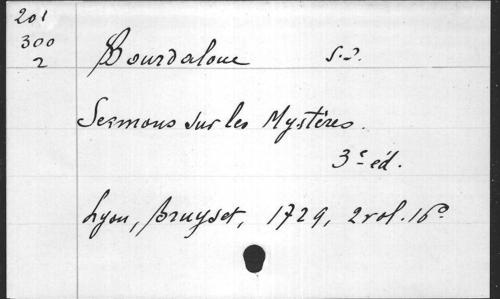 201
300
2
Bourdaloue S.J.
Sermons sur les Mystères.
3e éd.
Lyon, Bruyset, 1729, 2 vol. 16°